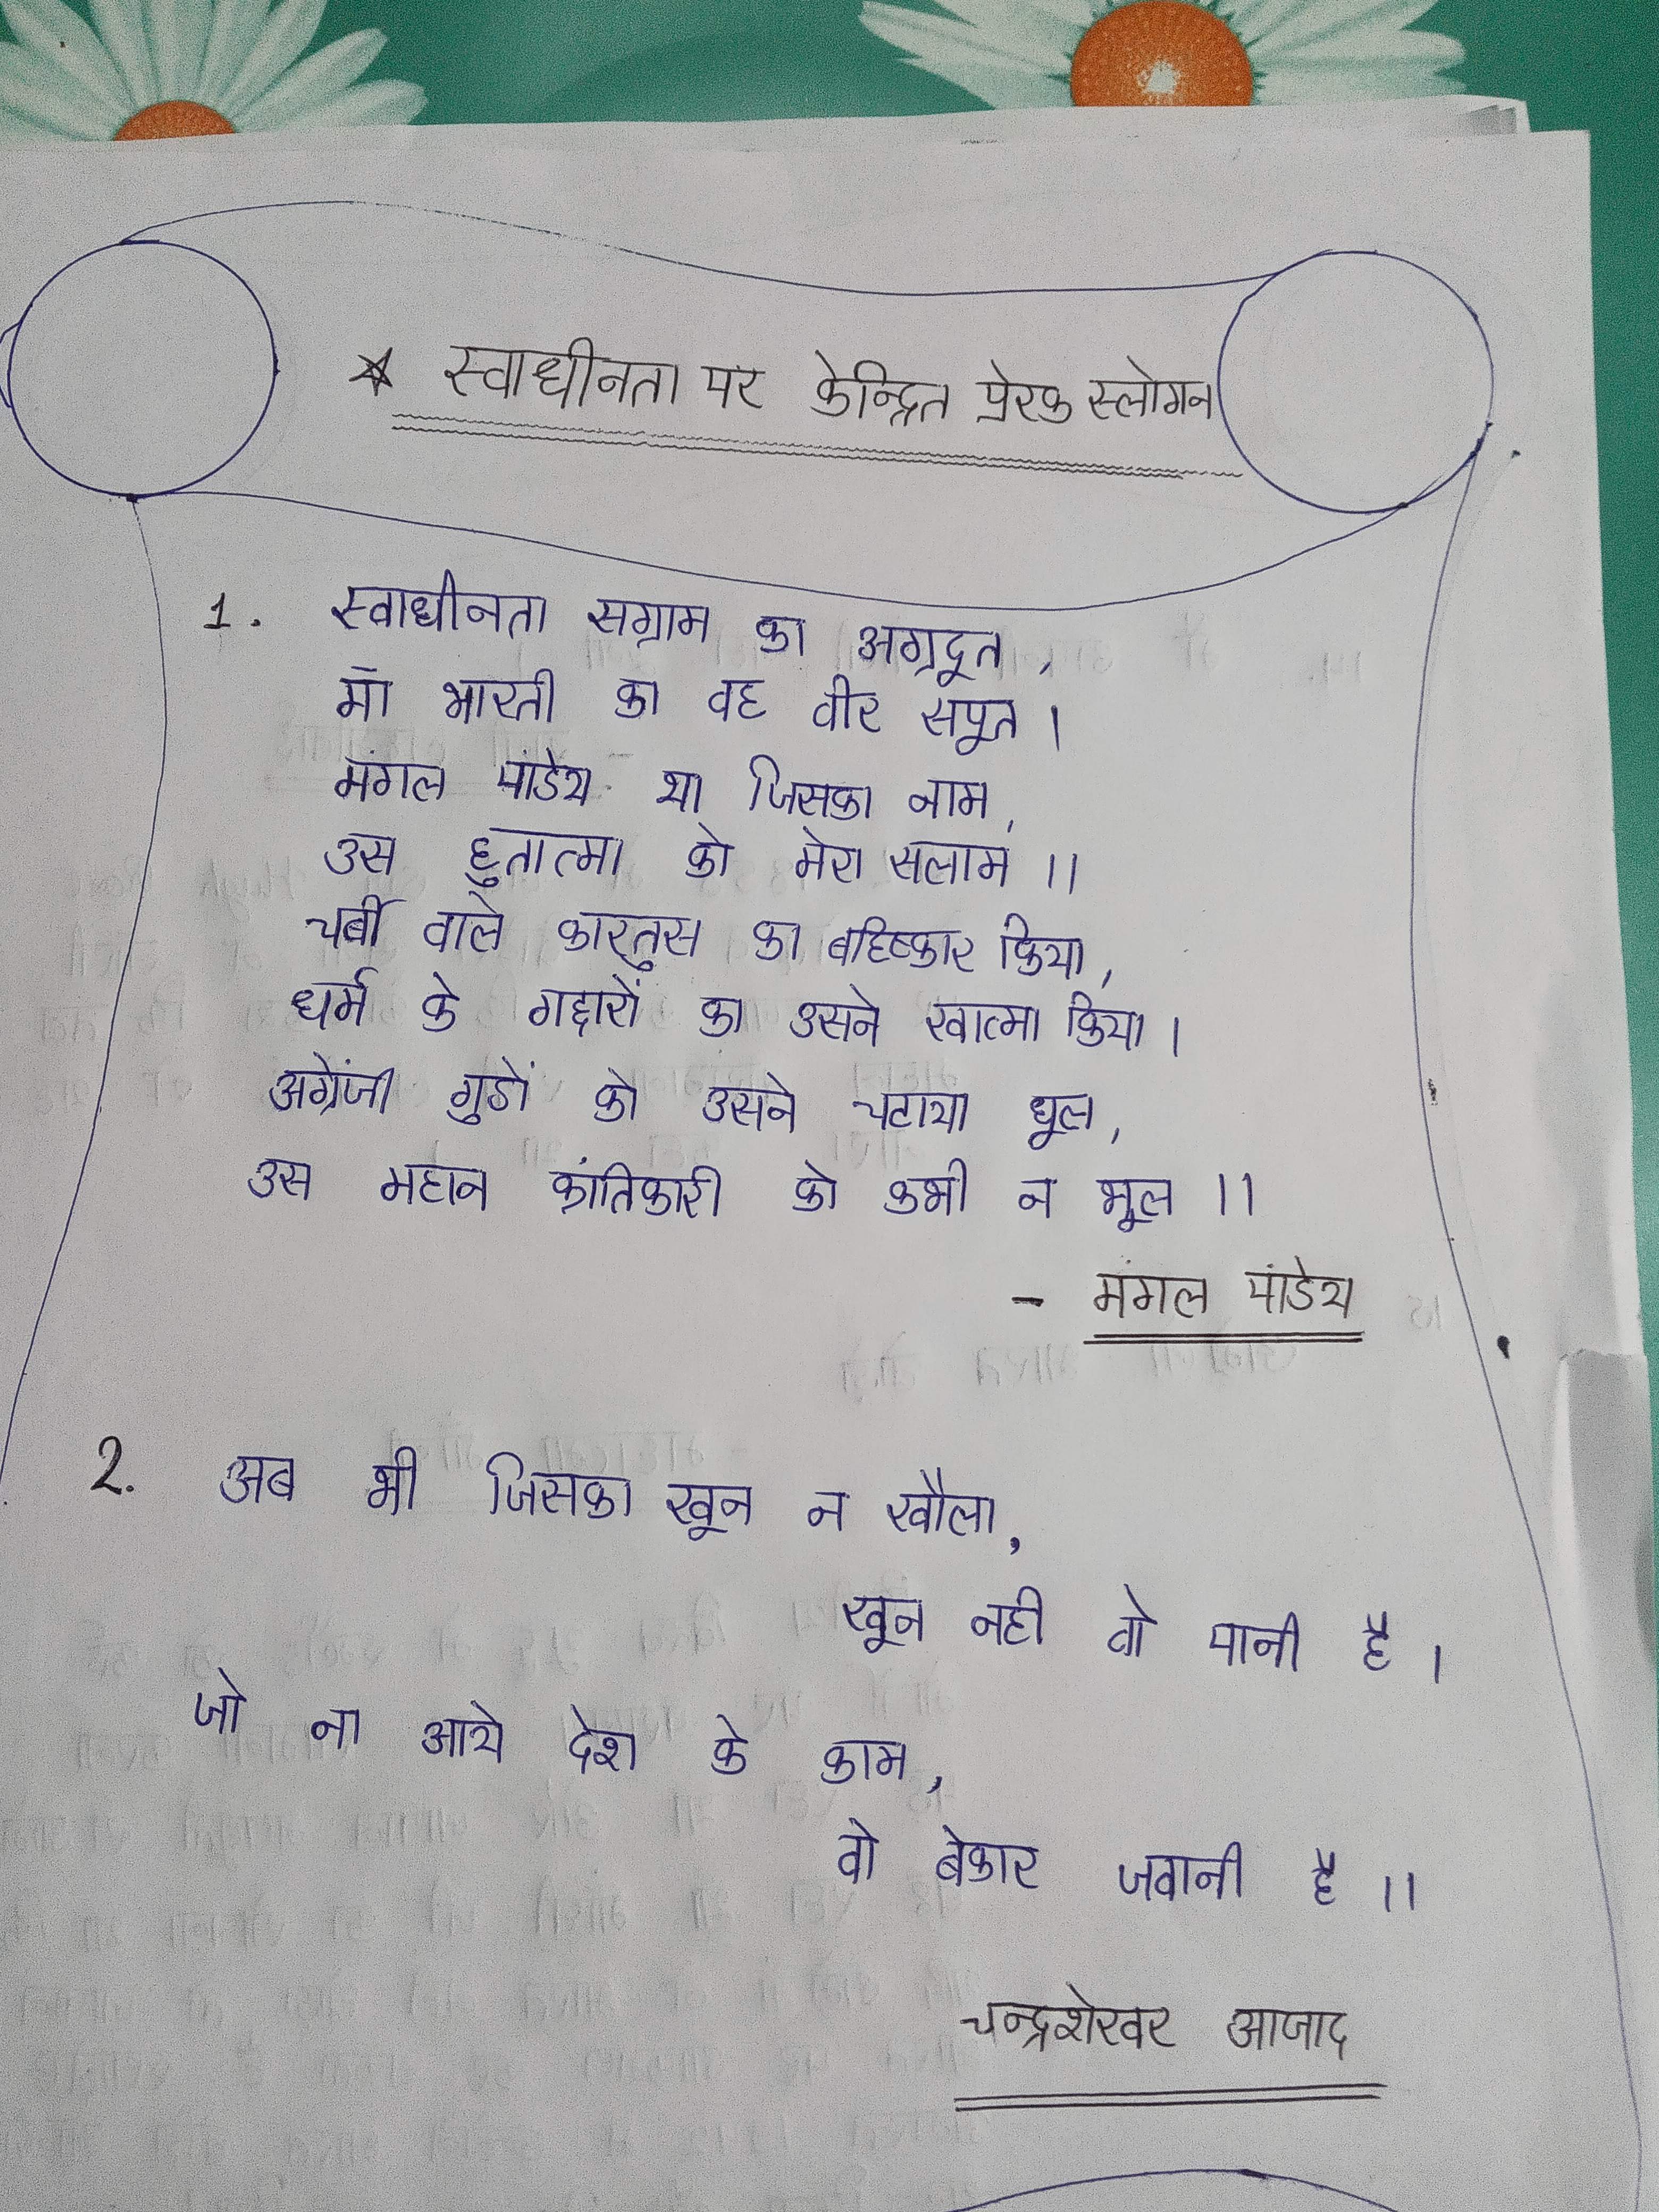 ★ स्वाधीनता पर केन्द्रित प्रेरक स्लोगन
1. स्वाधीनता सग्राम का अग्रदूत,
माँ भारती का वह वीर सपूत।
मंगल पांडेय था जिसका नाम,
उस हुतात्मा को मेरा सलाम ।।
चर्बी वाले कारतुस का बहिष्कार किया,
धर्म के गद्दारों का उसने खात्मा किया।
अग्रेंजी गुडों को उसने चटाया धूल,
उस महान क्रांतिकारी को कभी न भूल ।।
- मंगल पांडेय
2. अब भी जिसका खून न खौला,
खून नही वो पानी है।
जो ना आये देश के काम,
वो बेकार जवानी है ।।
चन्द्रशेखर आजाद